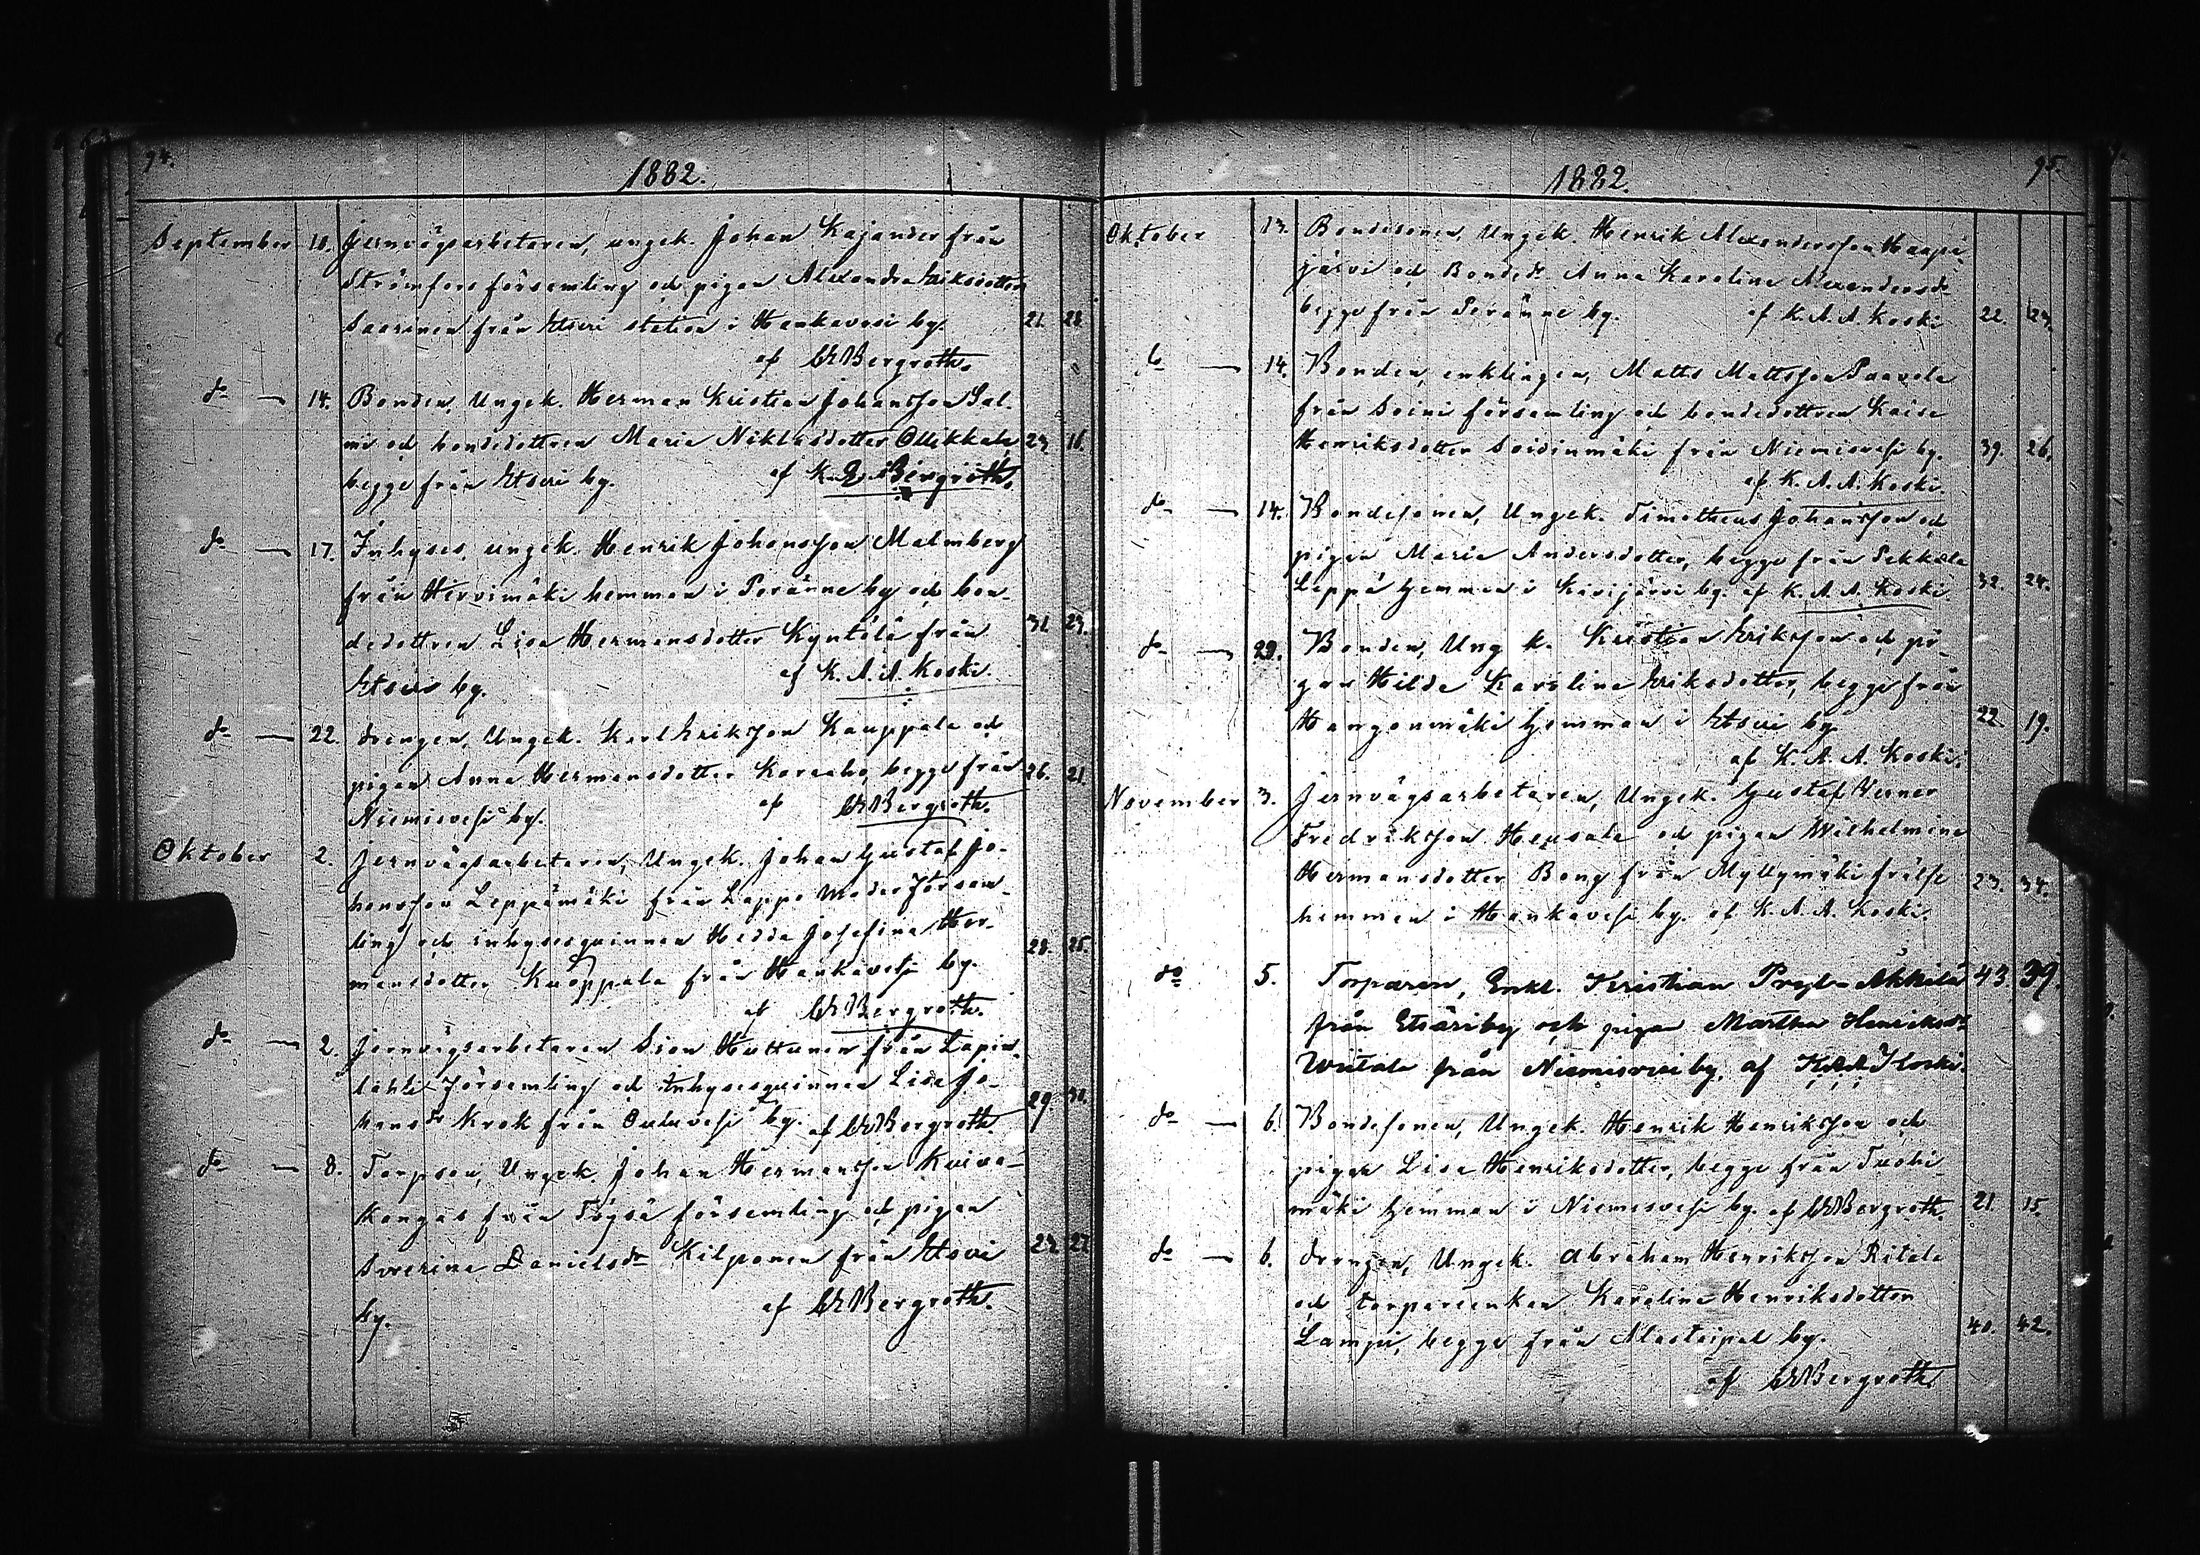 94.
1882.
September 10. Jernvägsarbetaren, ungk. Johan Kajander från
Strömfors församling och pigan Alexandra Eriksdotter
Saarinen från Etseri station i Hankavesi by. 21. 28.
af CEBergroth.
do — 14. Bonden, Ungk. Herman Kristian Johansson Sal-
mi och bondedottren Maria Niklasdotter Ollikkala 23. 18.
begge från Etseri by. af Bergroth.
do — 17. Inhyses, ungk. Henrik Johansson Malmberg
från Hirvimäki hemman i Peränne by och bon-
dedottren Lisa Hermansdotter Kyntälä från 31. 23.
Etseri by. af K. A. A. Koski.
do — 22. Drengen, Ungk. Karl Eriksson Kauppala och
pigan Anna Hermansdotter begge från 26. 21.
Niemisvesi by. af CEBergroth.
Oktober 2. Jernvägsarbetaren, Ungk. Johan Gustaf Jo-
hansson Leppämäki från Lappo Moder försam-
ling och inhysesqvinnan Hedda Josefina Her-
mansdotter Kauppala från Hankavesi by. 28. 25.
af CEBergroth.
do — 2. Jernvägsarbetaren Sion Huttunen från Lapin-
lahti församling och Inhysesqvinnan Lisa Jo-
hansdr Krok från Ouluvesi by. af CEBergroth. 29. 30.
do — 8. Torpson, Ungk. Johan Hermansson Kuiva-
kangas från Töysä församling och pigan
Severina Danielsdr Kilponen från Etseri 23. 22.
by. af CEBergroth.
95.
1882.
Oktober 13. Bondesonen, Ungk. Henrik Alexandersson Haapa-
järvi och Bondedr Anna Karolina Alexandersdr
begge från Peränne by. af K. A. A. Koski 22. 23.
do — 14. Bonden, enklingen, Matts Mattsson Paavola
från Soini församling och bondedottren Kaisa
Henriksdotter Soidinmäki från Niemisvesi by. 39. 26.
af K. A. A. Koski.
do — 14. Bondesonen, Ungk. Timotheus Johansson och
pigan Maria Andersdotter, begge från Pekkala
Leppä hemman i Kivijärvi by. af K. A. A. Koski 32. 24.
do — 29. Bonden, Ung k. Kristian Eriksson och pi-
gan Hilda Karolina Eriksdotter, begge från
Hangonmäki hemman i Etseri by 22. 19.
af K. A. A. Koski.
November 3. Jernvägsarbetaren, Ungk. Gustaf Verner
Fredriksson Heusala och pigan Wilhelmina
Hermansdotter Bong från Myllymäki frälse 23. 34.
hemman i Hankavesi by. af K. A. A. Koski.
do 5. Torparen, Enkl. Kristian Akkila 43 39.
från Etsäri by och pigan Martha Henriksdr
från Niemisvesi by. af Koski.
do — 6. Bondesonen, Ungk. Henrik Henriksson och
pigan Lisa Henriksdotter, begge från Tuohi-
mäki hemman i Niemisvesi by. af CEBergroth. 21. 15.
do — 6. Drengen, Ungk. Abraham Henriksson Ritala
och torpareenkan Karolina Henriksdotter
Lampi, begge från Alastaipal by. 40. 42.
af CEBergroth.